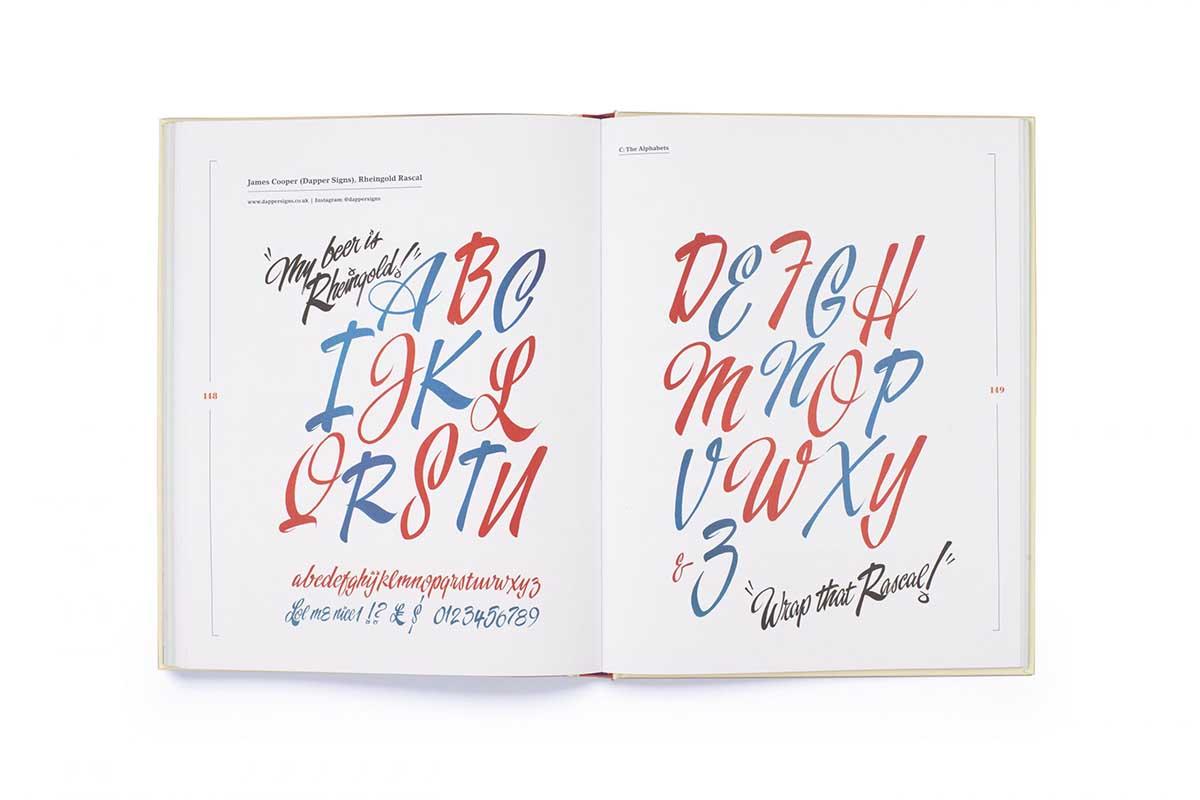 James Cooper (Dapper Signs), Rheingold Rascal
www.dappersigns.co.uk | Instagram: @dappersigns
"My beer is
Rheingold!"
A B C
I J K L
Q R S T U
abcdefghijklmnopqrstuvwxyz
!? £ $ 0123456789
148
C: The Alphabets
D E F G H
M N O P
V W X Y
& Z
"Wrap that Rascal!"
149